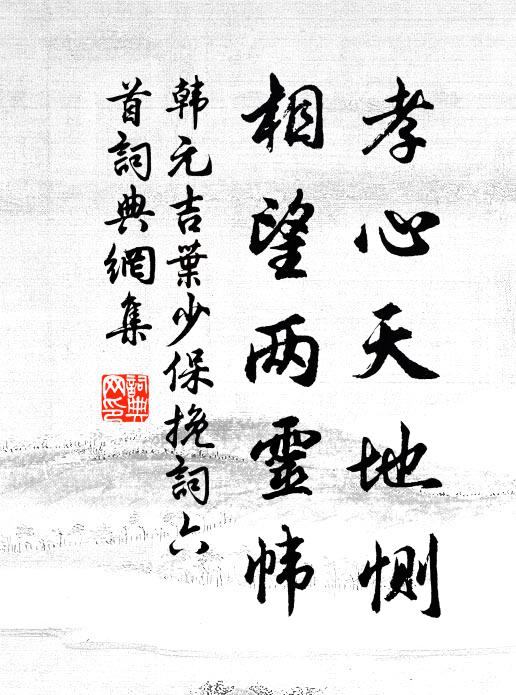 孝心天地恻
相望两靈帏
韩元吉葉少保挽詞六
首詞典網集
詞典
网印